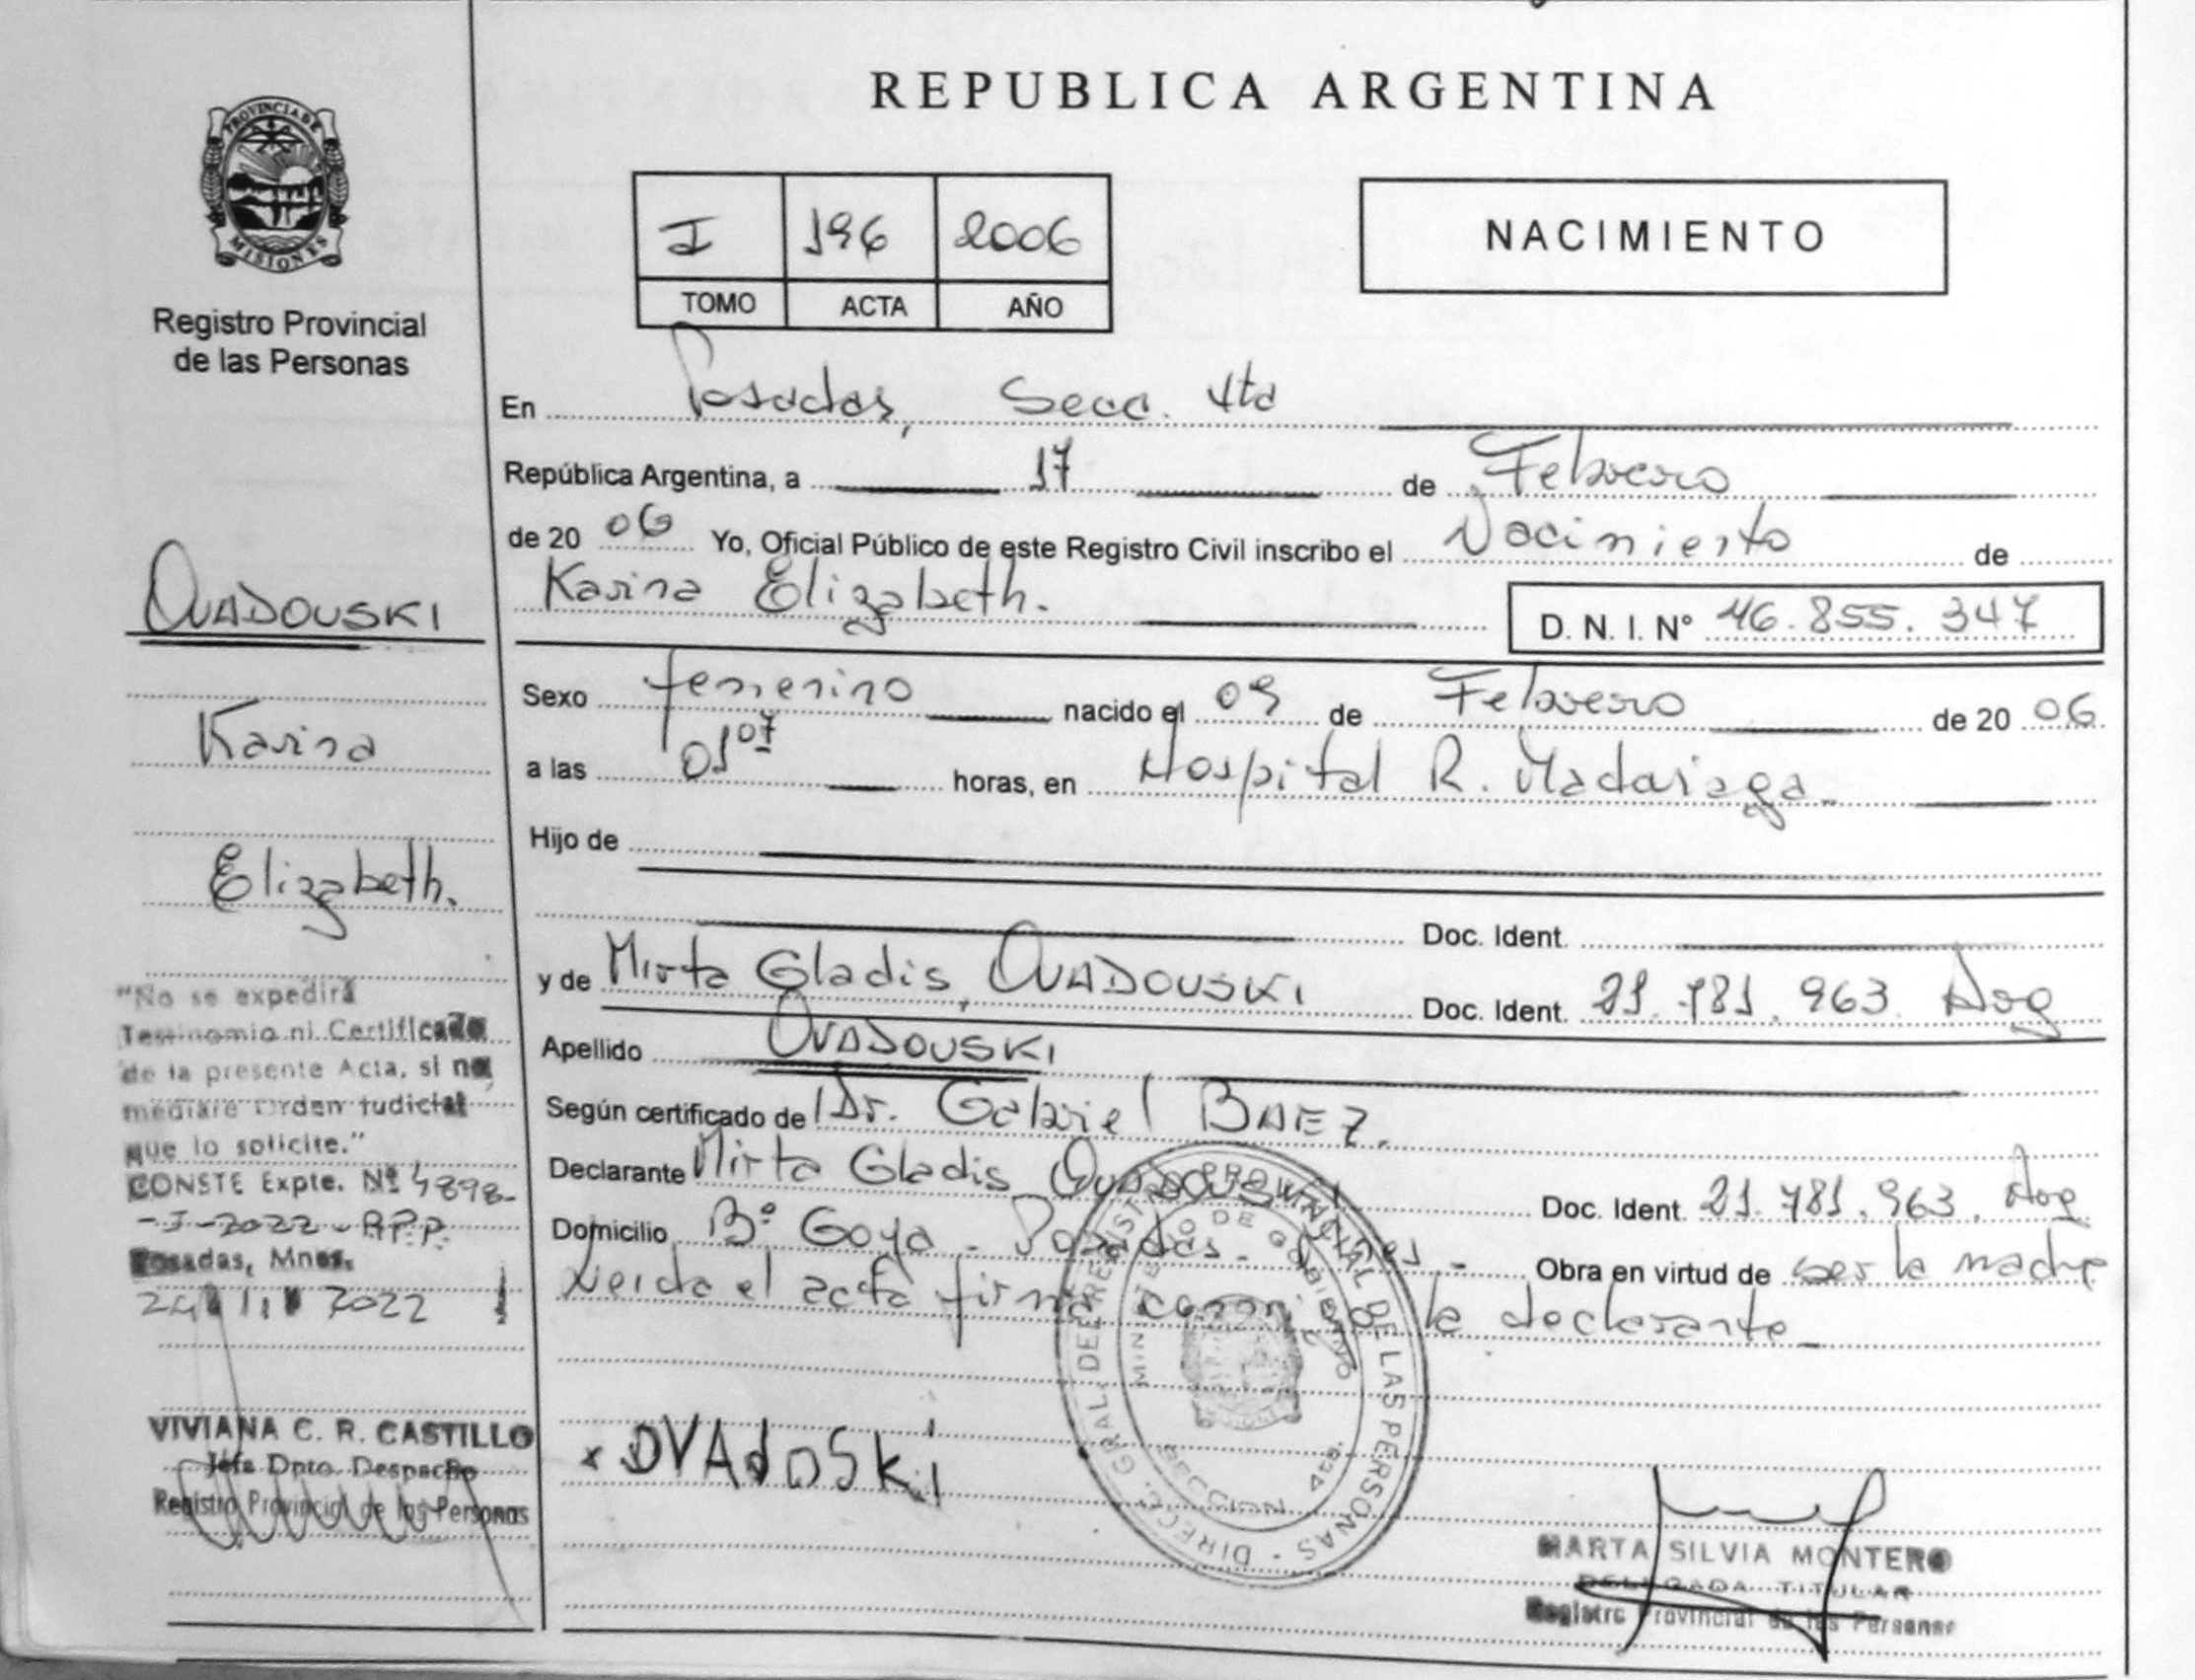 PROVINCIA DE
MISIONES
Registro Provincial
de las Personas
OVADOUSKI
Karina
Elizabeth.
"No se expedirá
Testinomio ni Certificado
de la presente Acta, si no
mediare Orden Judicial
que lo solicite."
CONSTE Expte. Nº 4898-
-I-2022-RPP.
Posadas, Mnes.
2022
VIVIANA C. R. CASTILLO
Jefa Dpto. Despacho
Registro Provincial de las Personas
REPUBLICA ARGENTINA
I 196 2006
TOMO ACTA AÑO
NACIMIENTO
En Posadas, Secc. 4ta
República Argentina, a 17 de Febrero
de 20 06 Yo, Oficial Público de este Registro Civil inscribo el Nacimiento de
Karina Elizabeth. D. N. I. Nº 46.855.347
Sexo femenino nacido el 09 de Febrero de 20 06
a las 01 07 horas, en Hospital R. Madariaga.
Hijo de
Doc. Ident.
y de Mirta Gladis, OVADOUSKI Doc. Ident. 21.781.963 Arg
Apellido OVADOUSKI
Según certificado de Dr. Gabriel BAEZ.
Declarante Mirta Gladis OVADOUSKI Doc. Ident. 21.781.963. Arg
Domicilio Bº Goya - Posadas - Obra en virtud de ser la madre
Leida el acta firma conmigo la declarante
x OVAdoSki
DIRECC. GRAL. DE REGISTRO PROVINCIAL DE LAS PERSONAS
MINISTERIO DE GOBIERNO
SECCION 4ta.
MARTA SILVIA MONTERO
DELEGADA TITULAR
Registro Provincial de las Personas